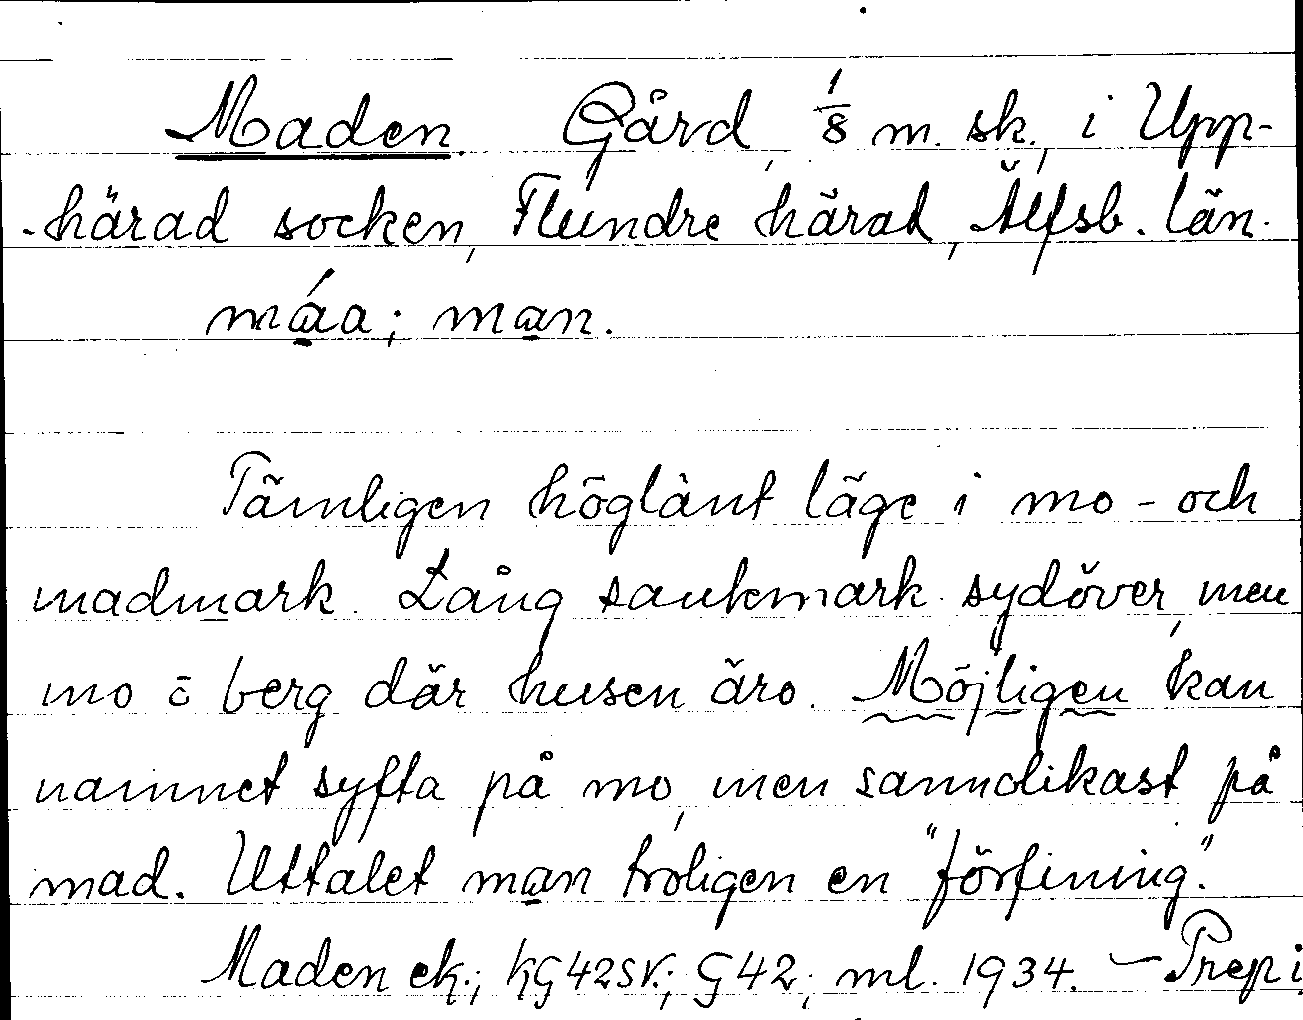 Maden. Gård, 1/8 m. sk., i Upp-
-härad socken, Flundre härad, Älfsb. län.
máa; man.
Tämligen höglänt läge i mo- och
madmark. Lång sankmark sydöver, men
mo o berg där husen äro. Möjligen kan
namnet syfta på mo, men sannolikast på
mad. Uttalet man troligen en "förfining".
Maden ek.; KG42SV.; G42; ml. 1934. — Prep i